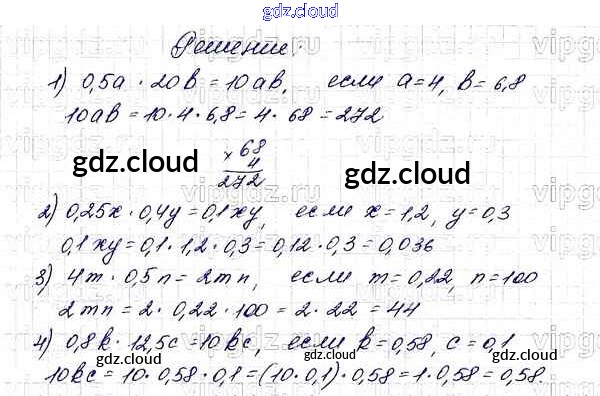 gdz.cloud
Решение:
1) 0,5a · 20b = 10ab, если a=4, b=6,8
10ab = 10·4·6,8 = 4·68 = 272
×68
4
272
gdz.cloud gdz.cloud
2) 0,25x · 0,4y = 0,1xy, если x=1,2, y=0,3
0,1xy = 0,1·1,2·0,3 = 0,12·0,3 = 0,036
3) 4m · 0,5n = 2mn, если m=0,22, n=100
2mn = 2·0,22·100 = 2·22 = 44
4) 0,8k · 12,5c = 10kc, если k=0,58, c=0,1
gdz.cloud gdz.cloud
10kc = 10·0,58·0,1 = (10·0,1)·0,58 = 1·0,58 = 0,58.